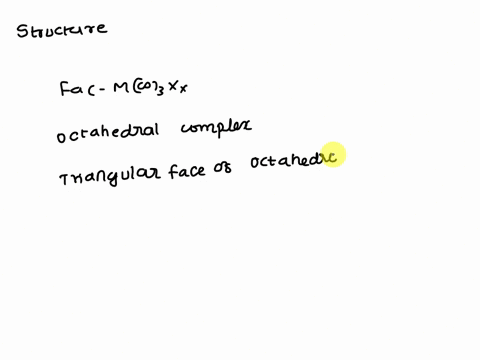 Structure
Fac- M(CO)3 Xx
octahedral complex
Triangular face of octahedr